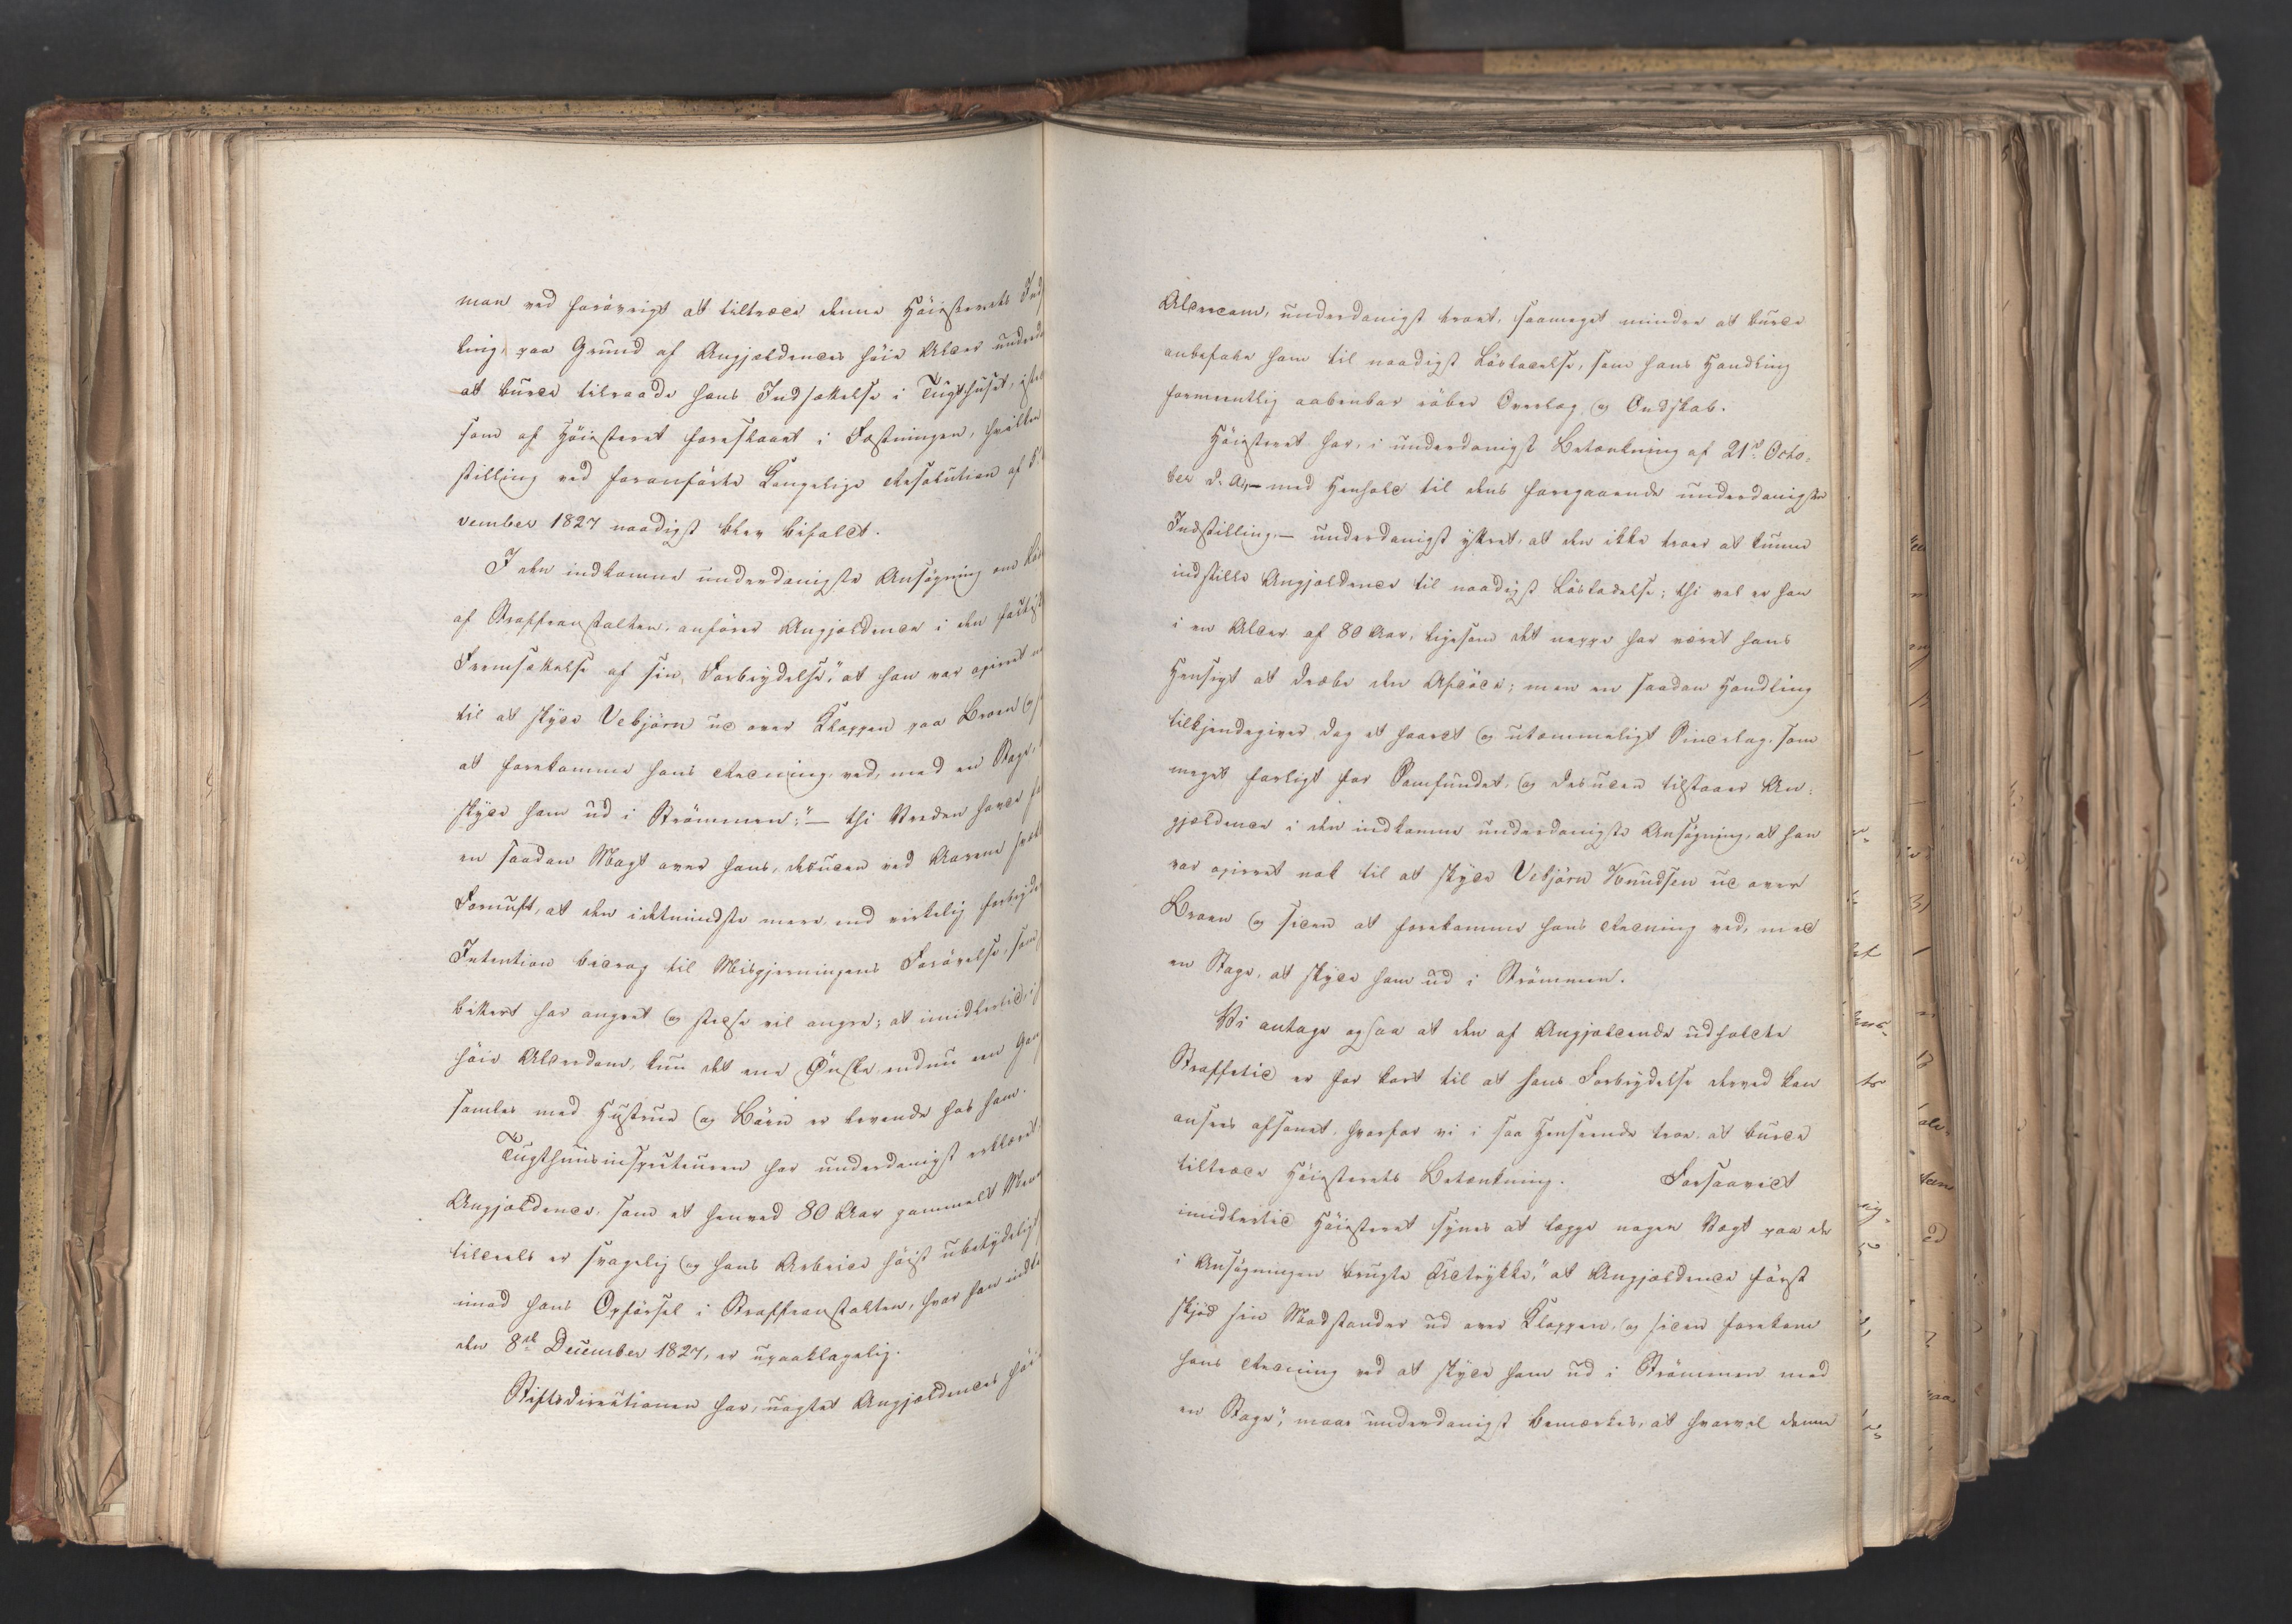 man ved forøvrigt at tiltræde denne Höiesterets Ind
ling, paa Grund af Angjældendes höie Alder underd
at burde tilraade hans Indsættelse i Tugthuset, iste
som af Höiesteret foreslaaet i Fæstningen, hvilken
stilling ved foranførte Kongelige Resolution af
vember 1827 naadigst blev bifaldt.
I den indkomne underdanigste Ansøgning om Lös
af Straffeanstalten, anfører Angjældende i den
Fremsættelse af sin Forbrydelse, "at han var opirret
til at skyde Vebjörn ud over Kloppen paa Broen og
at forekomme hans Redning ved, med en Stage,
skyde ham ud i Strömmen;" - thi Vreden havde
en saadan Magt over hans, desuden ved Aarene
Fornuft, at den idetmindste mere end virkelig forbryde
Intention bidrog til Misgjerningens Forøvelse, som
bittert har angret og stedse vil angre; at imidlertid, i
höie Alderdom, kun det ene Önske endnu een Gang
samles med Hustrue og Börn er levende hos ham.
Tugthuusinspecteuren har underdanigst erklæret
Angjældende, som et henved 80 Aar gammelt Men
tildeels er svagelig og hans Arbeide höist ubetydeligt
imod hans Opförsel i Straffeanstalten, hvor han indk
den 8de December 1827, er upaaklagelig.
Stiftsdirectionen har, uagtet Angjældendes höi
Alderdom, underdanigst troet, saameget mindre at burde
anbefale ham til naadigst Lösladelse, som hans Handling
formeentlig aabenbar röber Overlæg og Ondskab.
Höiesteret har, i underdanigst Betænkning af 21de Octo-
ber d. A, - med Henhold til dens foregaaende underdanigste
Indstilling, - underdanigst yttret, at den ikke troer at kunne
indstille Angjældende til naadigst Lösladelse; thi vel er han
i en Alder af 80 Aar, ligesom det neppe har været hans
Hensigt at dræbe den Afdöde; men en saadan Handling
tilkjendegiver dog et haardt og utæmmeligt Sindelag, som
meget farligt for Samfundet, og desuden tilstaaer An-
gjældende i den indkomne underdanigste Ansøgning, at han
var opirret nok til at skyde Vebjörn Knudsen ud over
Broen og siden at forekomme hans Redning ved, med
en Stage, at skyde ham ud i Strömmen.
Vi antage ogsaa at den af Angjældende udholdte
Straffetid er for kort til at hans Forbrydelse derved kan
ansees afsonet, hvorfor vi i saa Henseende troe at burde
tiltræde Höiesterets Betænkning. Forsaavidt
imidlertid Höiesteret synes at lægge nogen Vægt paa de
i Ansøgningen brugte Udtrykke, "at Angjældende först
skjöd sin Modstander ud over Kloppen, og siden forekom
hans Redning ved at skyde ham ud i Strömmen med
en Stage", maae underdanigst bemærkes, at hvorvel denne